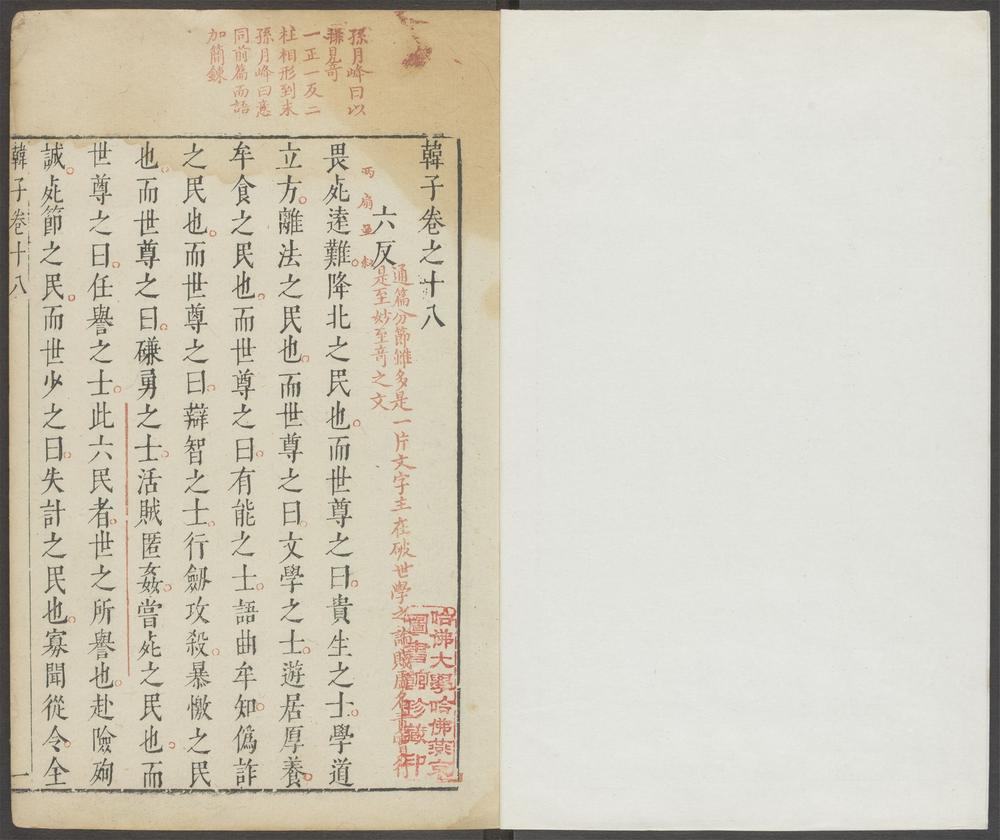 孫月峰曰以
一正一反二
柱相形到末
孫月峰曰意
同前篇而語
加簡鍊
韓子卷之十八
六反
通篇分節雖多是一片文字主在破世學之論賤虛名責實行
是至妙至奇之文
哈佛大學哈佛燕京
圖書館珍藏印
兩扇
畏死遠難降北之民也而世尊之曰貴生之士學道
立方離法之民也而世尊之曰文學之士遊居厚養
牟食之民也而世尊之曰有能之士語曲牟知偽詐
之民也而世尊之曰辯智之士行劒攻殺暴憿之民
也而世尊之曰磏勇之士活賊匿姦當死之民也而
世尊之曰任譽之士此六民者世之所譽也赴險殉
誠死節之民而世少之曰失計之民也寡聞從令全
韓子卷十八
一